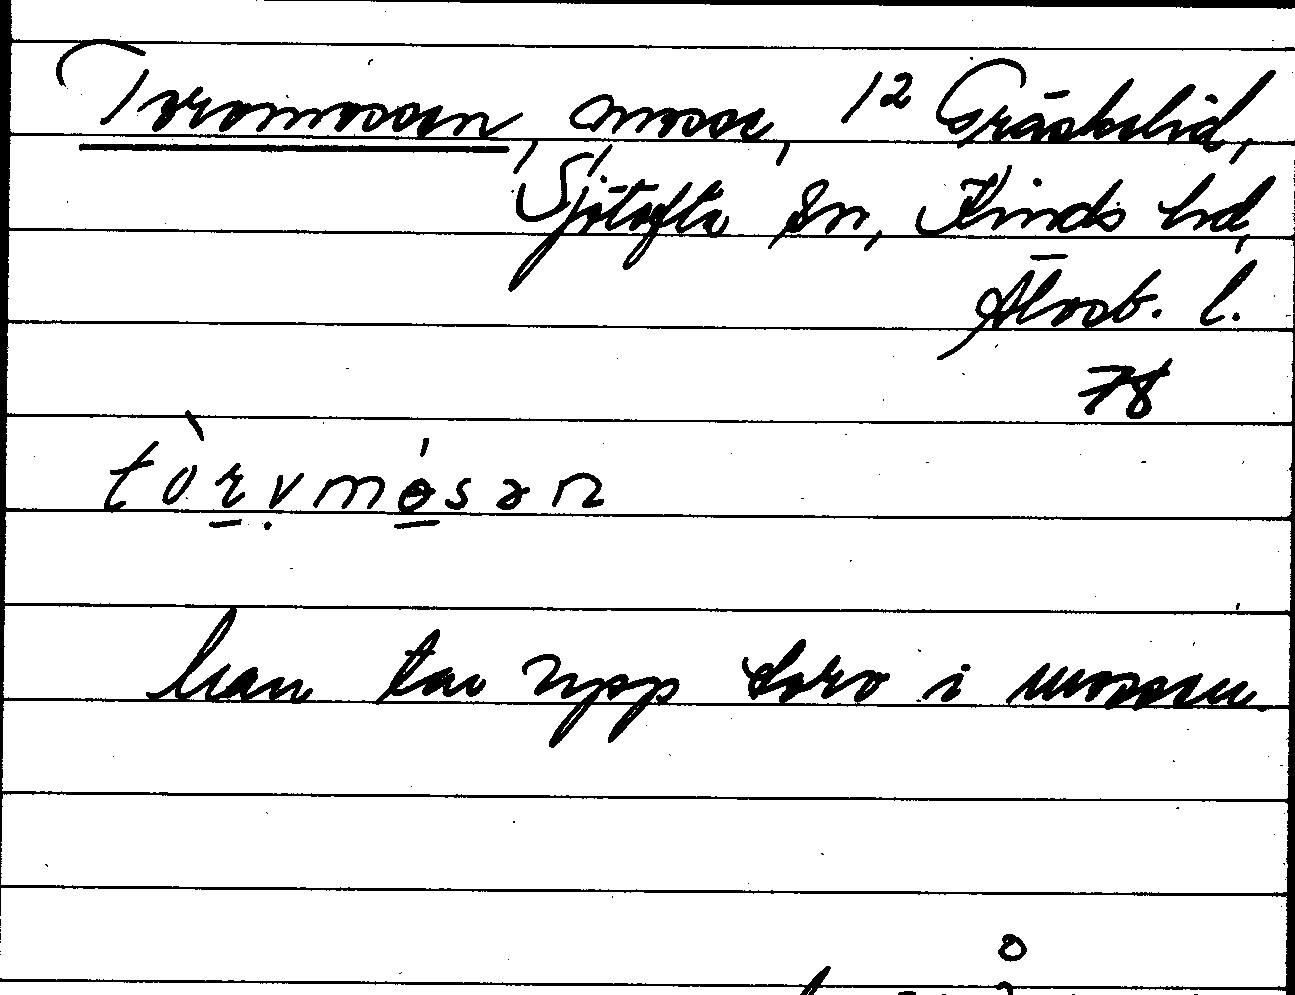 Torvmossen, mosse, 12 Gräskelid,
Sjötofta sn, Kinds hd,
Älvsb. l.
78
tòrvmósən
han tar upp torv i mossen.